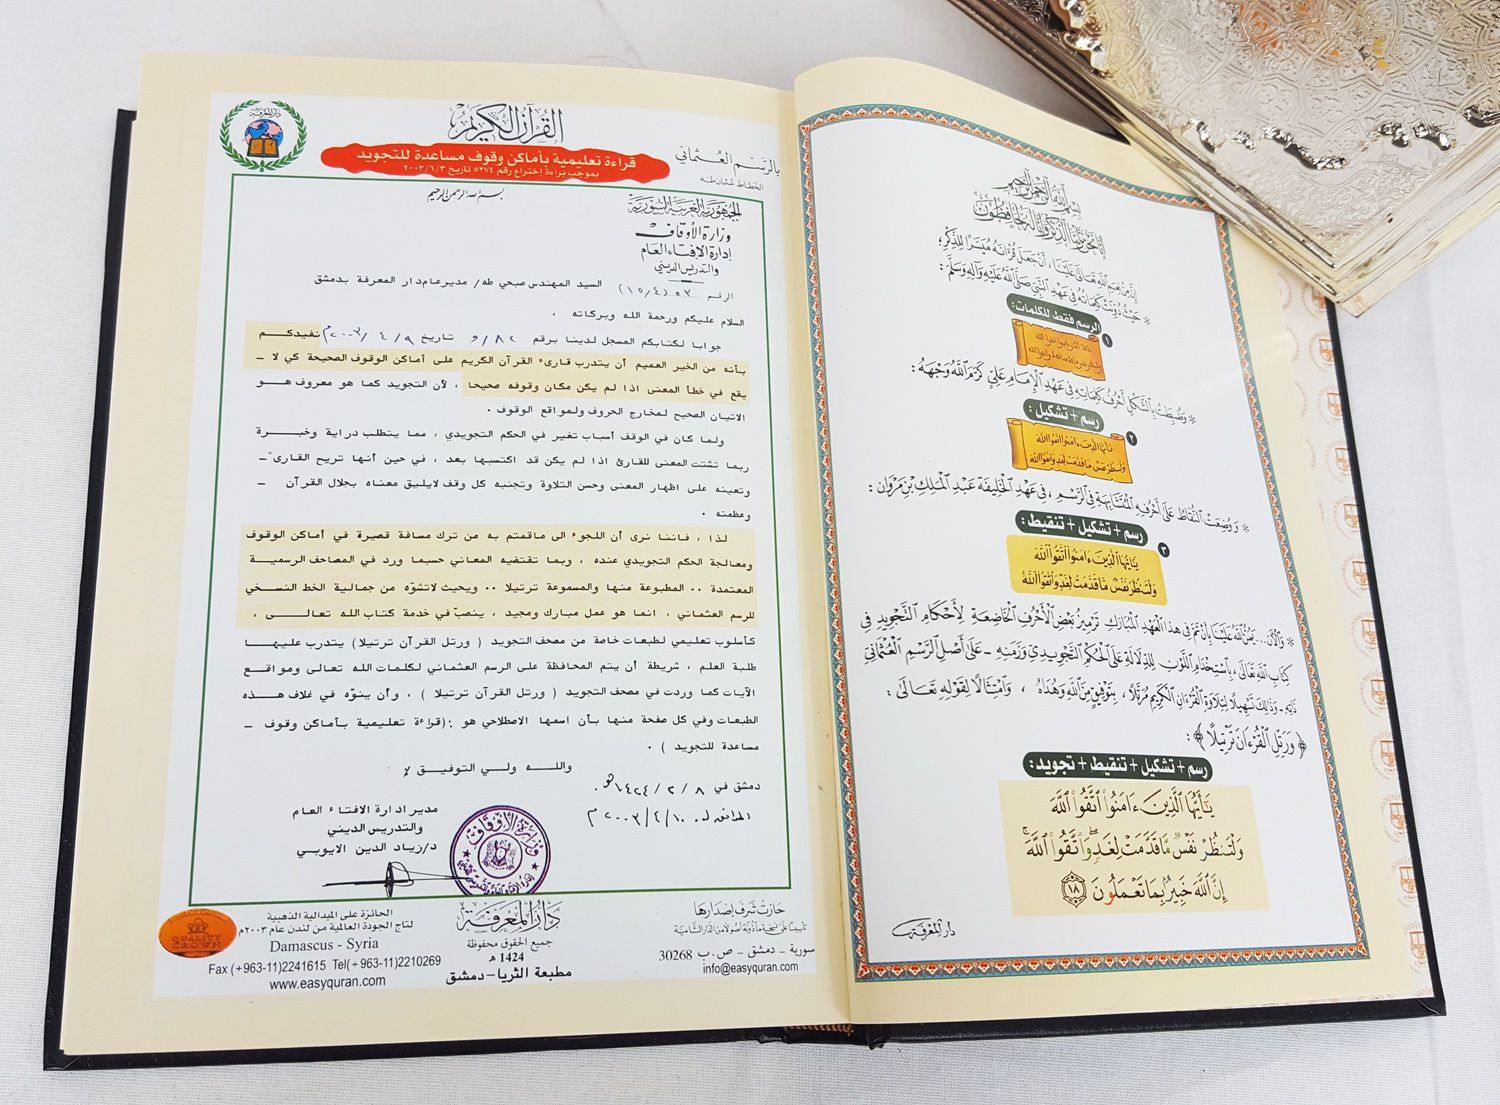 دار المعرفة
القرآن الكريم
بالرسم العثماني
الخطاط عثمان طه
قراءة تعليمية بأماكن وقوف مساعدة للتجويد
بموجب براءة إختراع رقم ٥٢٧٤ تاريخ ٢٠٠٣/٦/٣
بسم الله الرحمن الرحيم
الجمهورية العربية السورية
وزارة الأوقاف
إدارة الإفتاء العام
والتدريس الديني
الرقم ٥٣ (٤/١٥)
السيد المهندس صبحي طه/ مديرعام دار المعرفة بدمشق
السلام عليكم ورحمة الله وبركاته ،
جوابا لكتابكم المسجل لدينا برقم ٨٢/و تاريخ ٢٠٠٣/٤/٩م نفيدكم
بأنه من الخير العميم أن يتدرب قارىء القرآن الكريم على أماكن الوقوف الصحيحة كي لا ـ
يقع في خطأ المعنى اذا لم يكن مكان وقوفه صحيحا ، لأن التجويد كما هو معروف هو
الاتيان الصحيح لمخارج الحروف ولمواقع الوقوف .
ولما كان في الوقف أسباب تغير في الحكم التجويدي ، مما يتطلب دراية وخبرة
ربما تشتت المعنى للقارئ اذا لم يكن قد اكتسبها بعد ، في حين أنها تريح القارئ ـ
وتعينه على اظهار المعنى وحسن التلاوة وتجنبه كل وقف لايليق معناه بجلال القرآن ـ
وعظمته .
لذا ، فاننا نرى أن اللجوء الى ماقمتم به من ترك مسافة قصيرة في أماكن الوقوف
ومعالجة الحكم التجويدي عنده ، وبما تقتضيه المعاني حسبما ورد في المصاحف الرسمية
المعتمدة .. المطبوعة منها والمسموعة ترتيلا .. وبحيث لاتشوّه من جمالية الخط النسخي
للرسم العثماني ، انما هو عمل مبارك ومجيد ، ينصبّ في خدمة كتاب الله تعالى ،
كأسلوب تعليمي لطبعات خاصة من مصحف التجويد ( ورتل القرآن ترتيلا ) يتدرب عليها
طلبة العلم ، شريطة أن يتم المحافظة على الرسم العثماني لكلمات الله تعالى ومواقع
الآيات كما وردت في مصحف التجويد ( ورتل القرآن ترتيلا ) ، وأن ينوّه في غلاف هذه
الطبعات وفي كل صفحة منها بأن اسمها الاصطلاحي هو :(قراءة تعليمية بأماكن وقوف ـ
مساعدة للتجويد ) .
والله ولي التوفيق
دمشق في ١٤٢٤/٢/٨هـ .
الموافق لـ ٢٠٠٣/٤/١٠م
مدير ادارة الافتاء العام
والتدريس الديني
د/زياد الدين الايوبي
وزارة الأوقاف
QUALITY CROWN
الحائزة على الميدالية الذهبية
لتاج الجودة العالمية من لندن عام ٢٠٠٣م
Damascus - Syria
Fax (+963-11)2241615 Tel(+963-11)2210269
www.easyquran.com
دار المعرفة
جميع الحقوق محفوظة
1424 هـ
مطبعة الثريا-دمشق
حازت شرف إصدارها
سورية - دمشق - ص.ب 30268
info@easyquran.com
بسم الله الرحمن الرحيم
إنا نحن نزلنا الذكر وإنا له لحافظون
إن من نعم الله تعالى علينا، أن جعل قرآنه ميسرا للذكر؛
* حيث دونت كلماته في عهد النبي صلى الله عليه وآله وسلم :
الرسم فقط للكلمات:
١
* وضبطت بالشكل أحرف كلماته في عهد الإمام علي كرم الله وجهه :
رسم + تشكيل :
٢
* ووضعت النقاط على أحرفه المتشابهة في الرسم ، في عهد الخليفة عبد الملك بن مروان :
رسم + تشكيل + تنقيط:
٣
يَٰٓأَيُّهَا ٱلَّذِينَ ءَامَنُوا۟ ٱتَّقُوا۟ ٱللَّهَ
وَلْتَنظُرْ نَفْسٌ مَّا قَدَّمَتْ لِغَدٍ وَٱتَّقُوا۟ ٱللَّهَ
* والآن... يمن الله علينا بأن تم في هذا العهد المبارك ترميز بعض الأحرف الخاضعة لأحكام التجويد في
كتاب الله تعالى ، باستخدام اللون للدلالة على الحكم التجويدي وزمنه - على أصل الرسم العثماني
ذاته - وذلك تسهيلا لتلاوة القرءان الكريم مرتلا ، بتوفيق من الله وهداه ، وامتثالا لقوله تعالى :
﴿ ورتل القرءان ترتيلا ﴾ :
رسم + تشكيل + تنقيط + تجويد:
يَٰٓأَيُّهَا ٱلَّذِينَ ءَامَنُوا۟ ٱتَّقُوا۟ ٱللَّهَ
وَلْتَنظُرْ نَفْسٌ مَّا قَدَّمَتْ لِغَدٍ وَٱتَّقُوا۟ ٱللَّهَ
إِنَّ ٱللَّهَ خَبِيرٌۢ بِمَا تَعْمَلُونَ ١٨
دار المعرفة